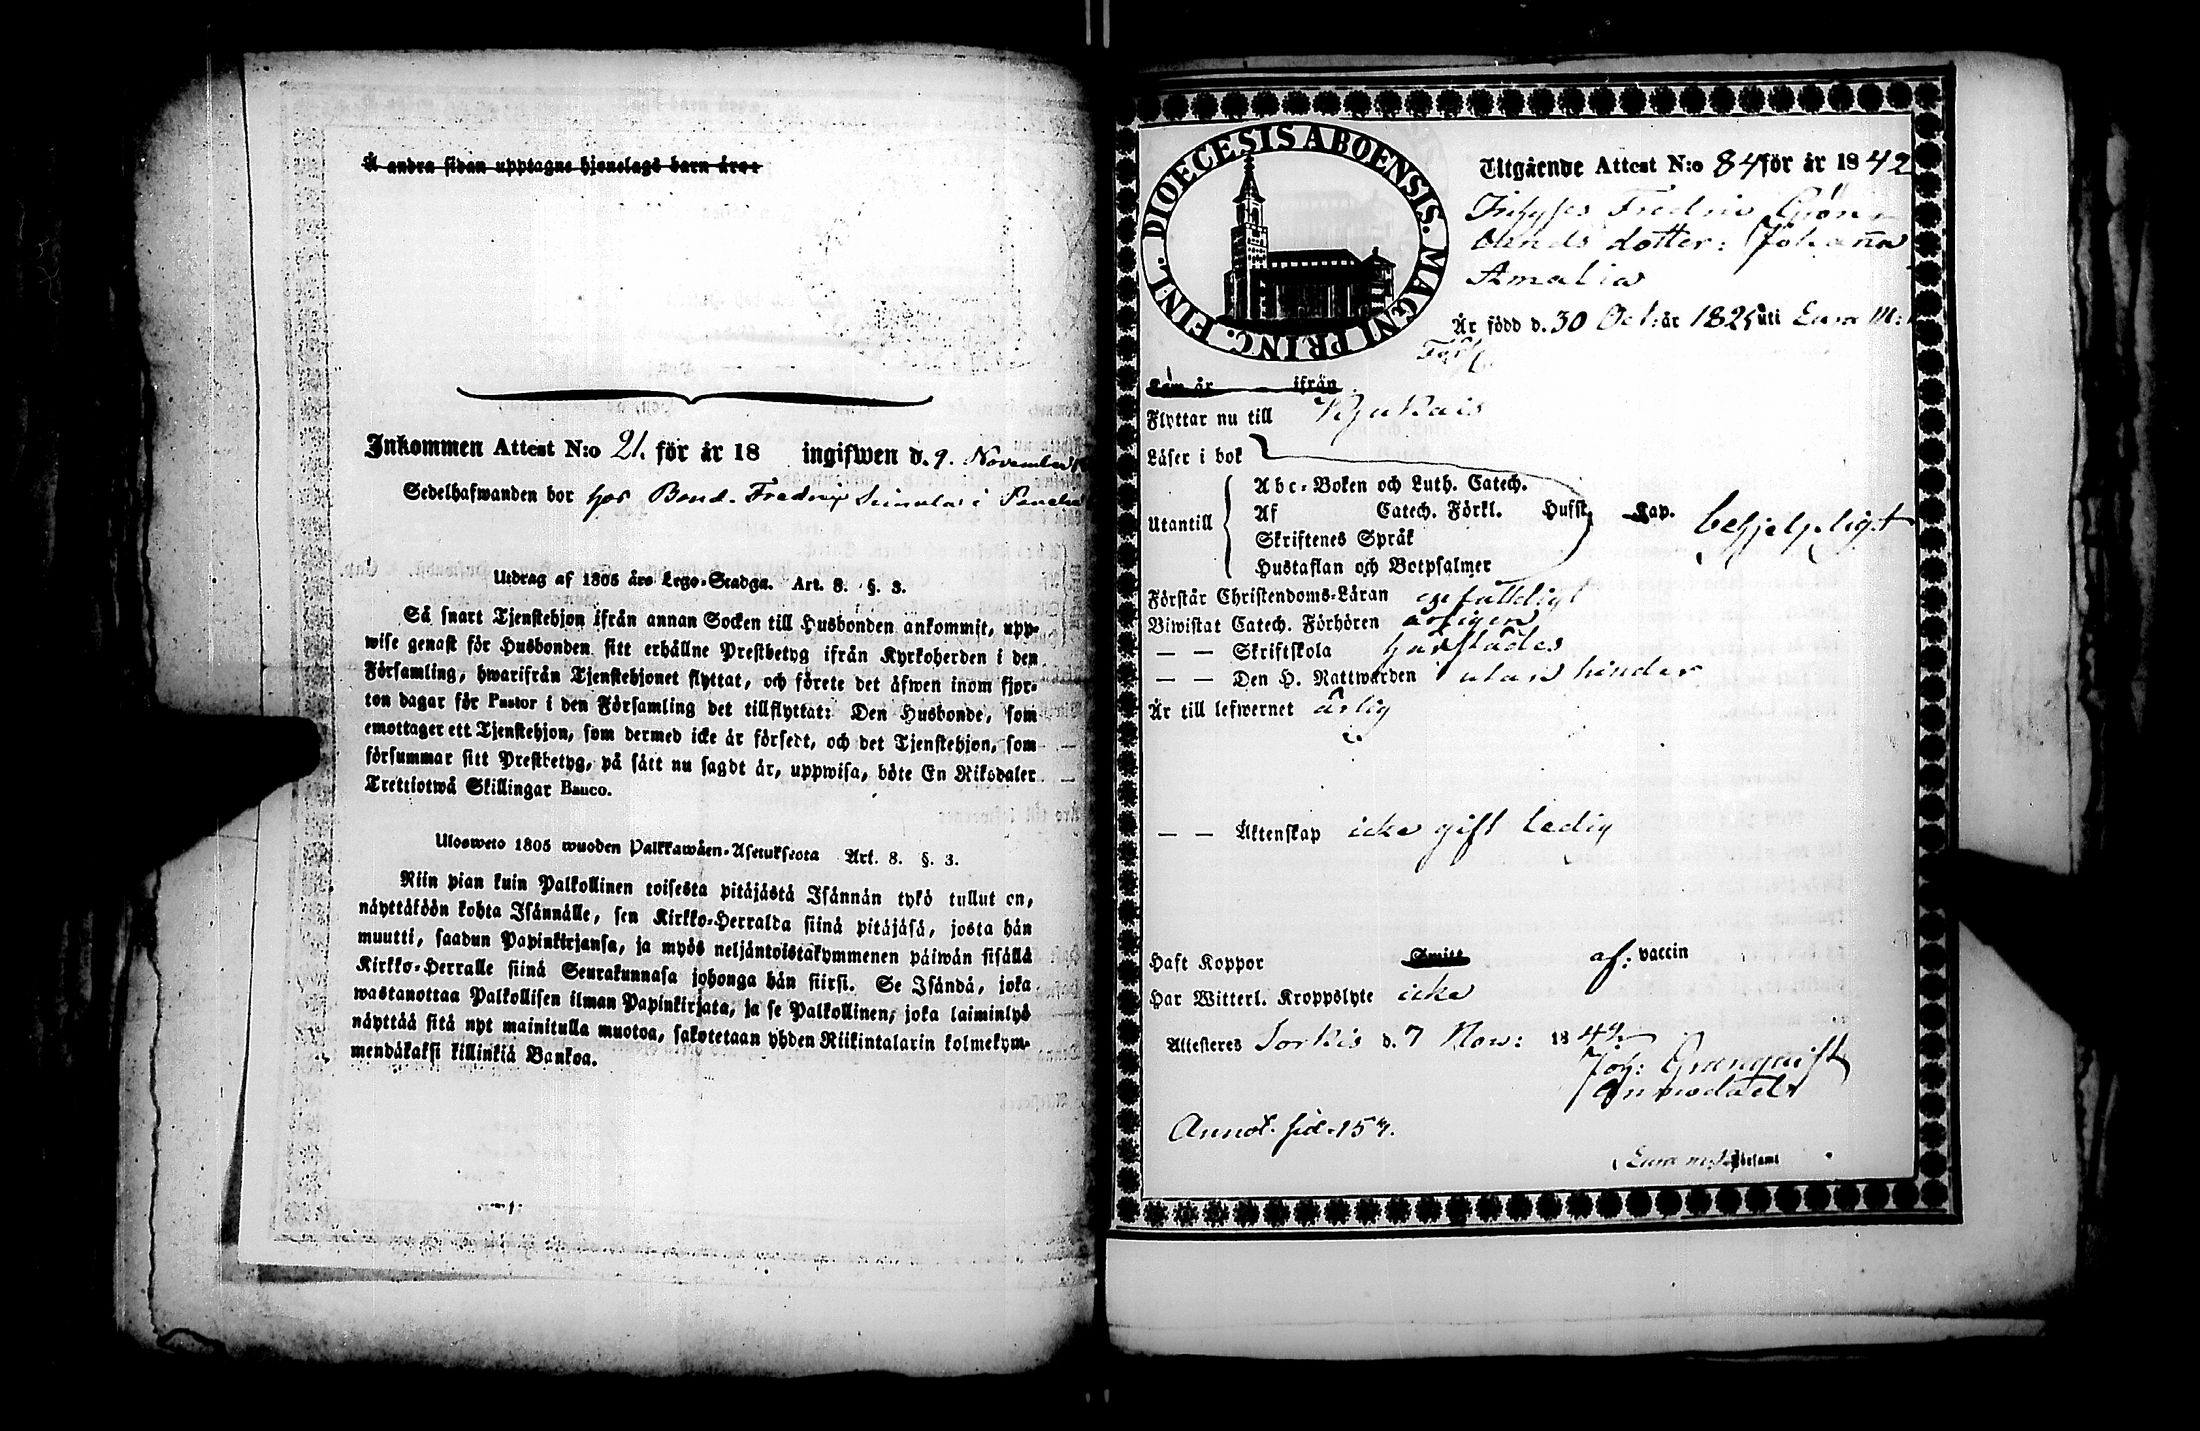 Å andra sidan upptagne hjonelags barn äro:
Inkommen Attest N:o 21. för år 18 ingifwen d. 9. November
Sedelhafwanden bor hos Bond. Fredrik i
Utdrag af 1805 års Lego-Stadga. Art. 8. §. 3.
Så snart Tjenstehjon ifrån annan Socken till Husbonden ankommit, upp-
wise genast för Husbonden sitt erhållne Prestbetyg ifrån Kyrkoherden i den
Församling, hwarifrån Tjenstehjonet flyttat, och förete det äfwen inom fjor-
ton dagar för Pastor i den Församling det tillflyttat: Den Husbonde, som
emottager ett Tjenstehjon, som dermed icke är försedt, och det Tjenstehjon, som
försummar sitt Prestbetyg, på sätt nu sagdt är, uppwisa, böte En Riksdaler
Trettiotwå Skillingar Banco.
Ulosweto 1805 wuoden Palkkawäen-Asetuksesta Art. 8. §. 3.
Niin pian kuin Palkollinen toisesta pitäjästä Isännän tykö tullut on,
näyttäköön kohta Isännälle, sen Kirkko-Herralda siinä pitäjäsä, josta hän
muutti, saadun Papinkirjansa, ja myös neljäntoistakymmenen päiwän sisällä
Kirkko-Herralle siinä Seurakunnasa johonga hän siirsi. Se Isändä, joka
wastanottaa Palkollisen ilman Papinkirjata, ja se Palkollinen, joka laiminlyö
näyttää sitä nyt mainitulla muotoa, sakotetaan yhden Riikintalarin kolmekym-
mendäkaksi killinkiä Bankoa.
DIOECESIS ABOENSIS. MAGNI PRINC. FINL.
Utgående Attest N:o 84 för år 1842
Fredric Grön-
lunds dotter: Johanna
Amalia
Är född d. 30 Oct: år 1825 uti Eura M:
Förs.
Kom år ifrån
Flyttar nu till Kjukais
Läser i bok
Utantill
Abc-Boken och Luth. Catech.
Af Catech. Förkl. Husst. Kap. behjelpligt
Skriftenes Språk
Hustaflan och Botpsalmer
Förstår Christendoms-Läran enfaldigt
Biwistat Catech. Förhören årligen
— — Skriftskola härstädes
— — Den H. Nattwarden utan hinder
Är till lefwernet ärlig
— — Äktenskap icke gift ledig
Haft Koppor Smitt af: vaccin
Har Witterl. Kroppslyte icke
Attesteres Sorkis d. 7 Nov: 1842
Joh: Granqvist
Annot. sid. 157.
Eura Församl